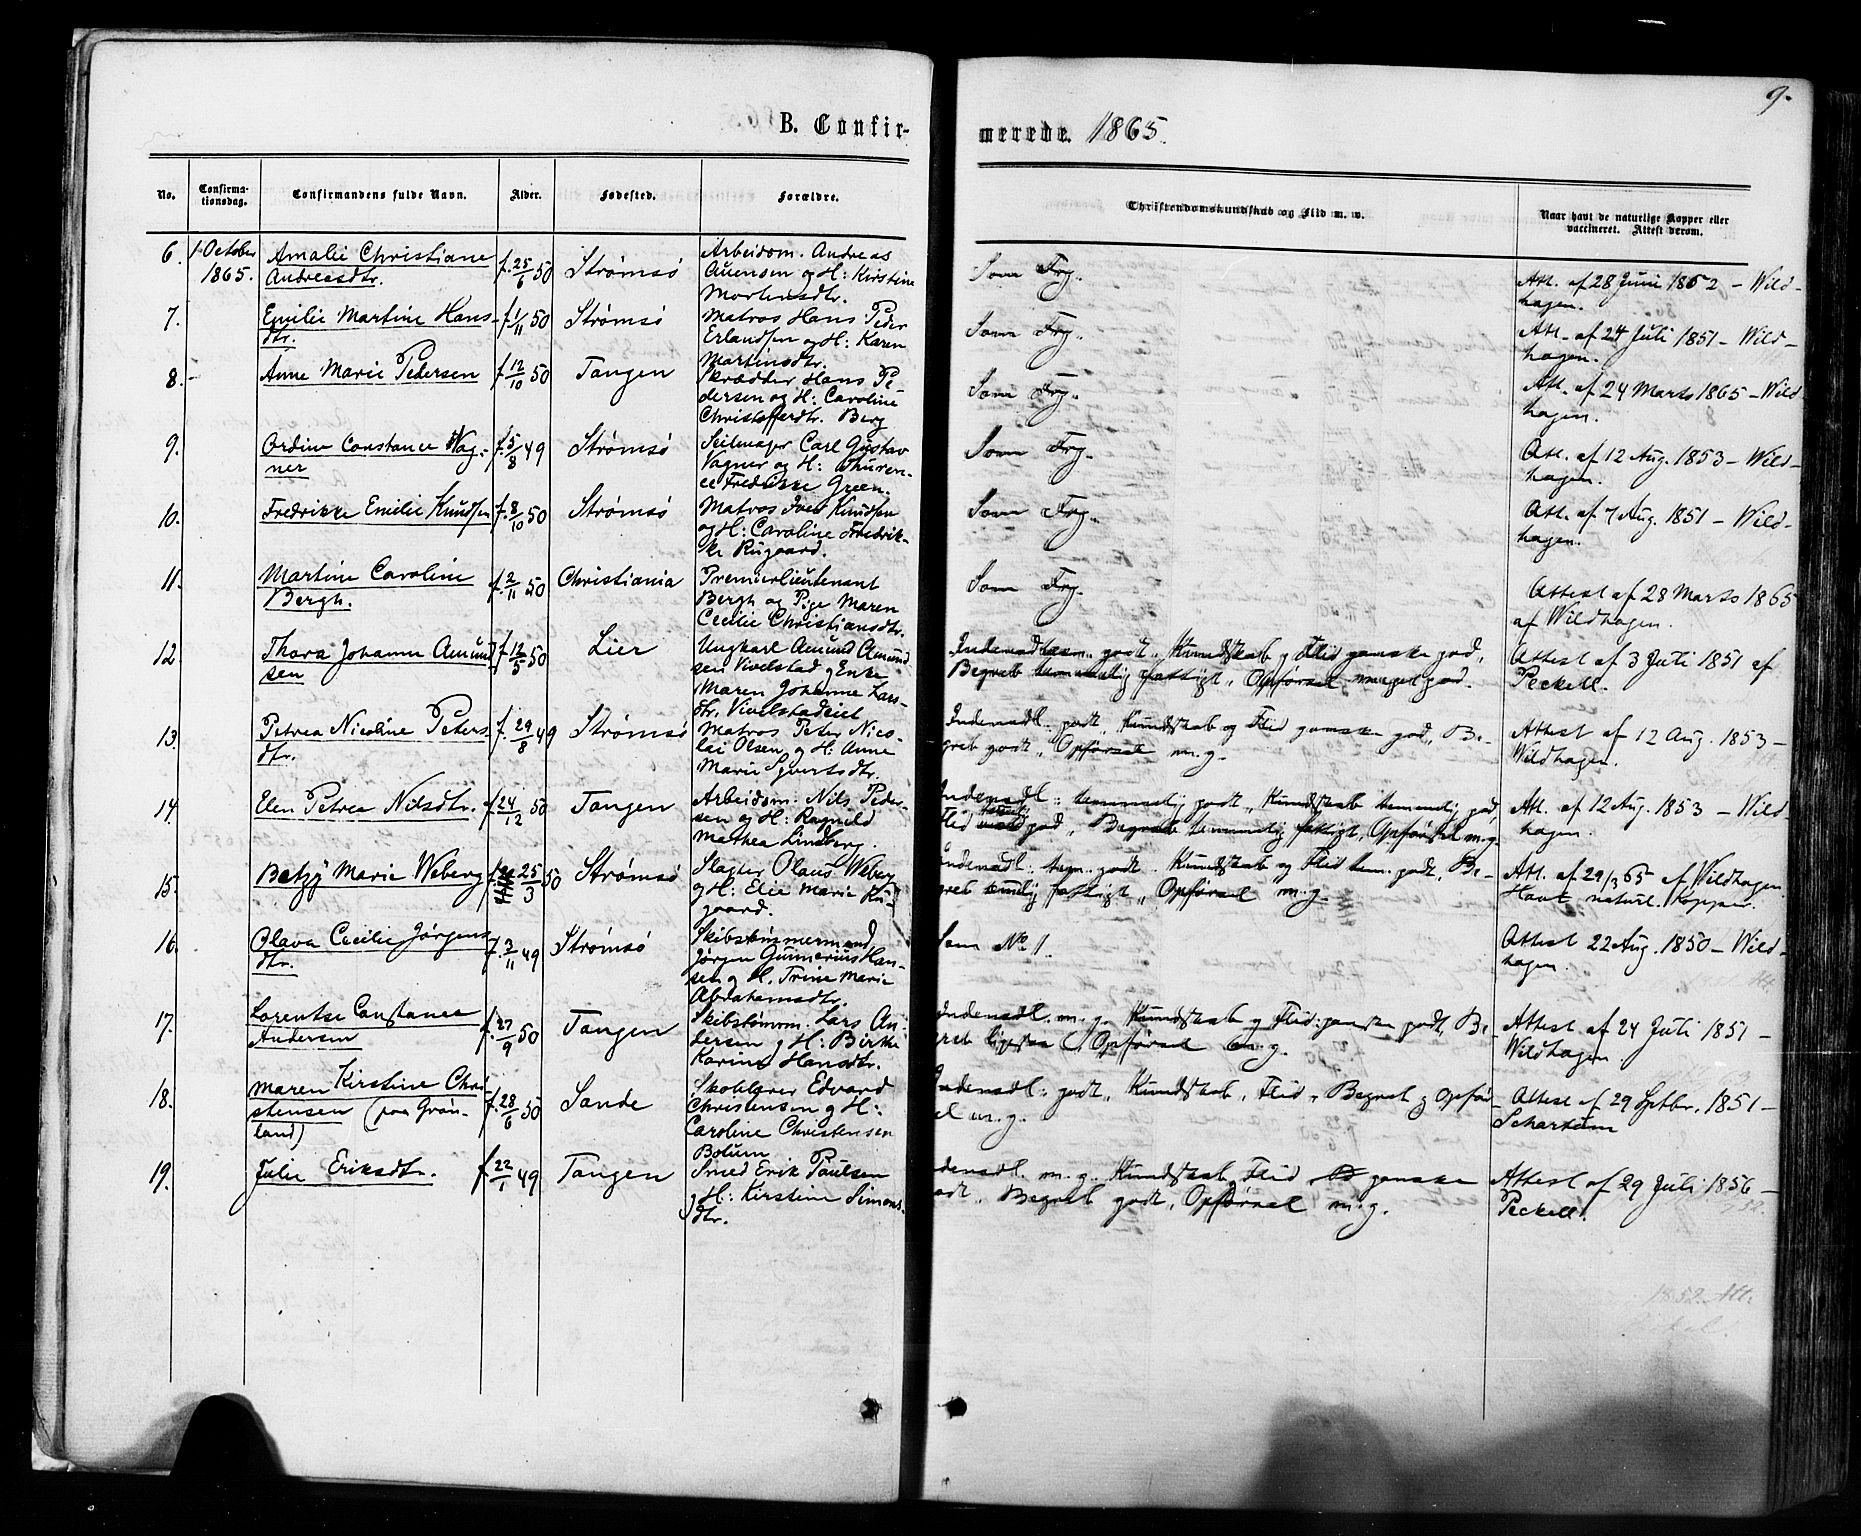 9.
B. Confirmerede. 1865.
No. Confirmationsdag. Confirmandens fulde Navn. Alder. Fødested. Forældre. Christendomskundskab og Flid m. v. Naar havt de naturlige Kopper eller vaccineret. Attest derom.
6. 1 October Amalie Christiane f. 25/6 50 Strømsø Arbeidsm. Andreas Som Frg. Att. af 28 Juni 1852 – Wild-
1865. Andreasdtr. og H: Kirstine hagen.
Mortensdtr.
7. Emilie Martine Hans- f. 1/11 50 Strømsø Matros Hans Peder Som Frg. Att. af 24 Juli 1851 – Wild-
dtr. Erlandsen og H: Karen hagen.
Martinsdtr.
8. Anne Marie Pedersen f. 12/10 50 Tangen Skrædder Hans Pe- Som Frg. Att. af 24 Marts 1865 – Wild
dersen og H: Caroline hagen.
Christoffersdtr. Berg
9. Ordine Constance Wag- f. 5/8 49 Strømsø Seilmager Carl Gustav Som Frg. Att. af 12 Aug. 1853 – Wild-
ner Vagner og H: Thuren- hagen.
ce Fredrikke Green.
10. Fredrikke Emilie Knudsen f. 8/10 50 Strømsø Matros Iver Knudsen Som Frg. Att. af 7 Aug. 1851 – Wild-
og H: Caroline Fredrik- hagen.
ke Rugaard.
11. Martine Caroline f. 2/11 50 Christiania Premierlieutenant Som Frg. Attest af 28 Marts 1865
Bergh. Bergh og Pige Maren af Wildhagen.
Cecilie Christiansdtr.
12. Thora Johanne Amund f. 12/5 50 Lier Ungkarl Amund Amund Indenadlæsn. godt, Kundskab og Flid ganske god, Attest af 3 Juli 1851 af
sen sen Vivelstad og Enke Begreb temmelig fattigt, Opførsel meget god. Peckell.
Maren Johanne Lars-
dtr. Vivelstadeiet
13. Petrea Nicoline Peters f. 29/8 49 Strømsø Matros Peter Nico- Indenadl: godt, Kundskab og Flid ganske god, Be- Attest af 12 Aug. 1853 –
dtr. lai Olsen og H: Anne greb godt, Opførsel m.g. Wildhagen.
Marie Syvertsdtr.
14. Elen Petrea Nilsdtr. f. 24/12 50 Tangen Arbeidsm: Nils Peder- Indenadl: temmelig godt, Kundskab temmelig god, Att. af 12 Aug. 1853 – Wild-
sen og H: Ragnild Flid god, Begreb temmelig fattigt, Opførsel m.g. hagen.
Mathea Lindberg.
15. Betzy Marie Weberg f. 25/3 50 Strømsø Slagter Olaus Weberg Indenadl: tem. godt. Kundskab og Flid tem. godt, Be- Att. af 29/3 65 af Wildhagen
og H: Elie Marie Ru- greb fattigt, Opførsel m.g. Havt naturl. Kopper.
gaard.
16. Olava Cecilie Jørgens f. 3/11 49 Strømsø Skibstømmermand Som No 1. Attest 22 Aug. 1850 – Wild
dtr. Jørgen Gunnerius Han- hagen.
sen og H. Trine Marie
Abrahamsdtr.
17. Lorentse Constance f. 27/9 50 Tangen Skibstømm. Lars An- Indenadl. m.g. Kundskab og Flid ganske godt, Be- Attest af 24 Juli 1851 –
Andersen dersen og H: Birthe Opførsel m.g. Wildhagen.
Karine Hansdtr.
18. Maren Kirstine Chri f. 28/6 50 Sande Skolelærer Edvard Indenadl: godt, Kundskab, Flid, Begreb og Opfør- Attest af 29 Septbr. 1851 –
stensen (paa Grøn- Christensen og H: sel m.g. Schartum
land) Caroline Christensen
Bolum
19. Julie Eriksdtr. f. 22/1 49 Tangen Smed Erik Paulsen Indenadl. m.g. Kundskab, Flid ganske Attest af 29 Juli 1856 –
og H: Kirstine Simons- godt, Begreb godt, Opførsel m.g. Peckell.
dtr.
1852 Att.